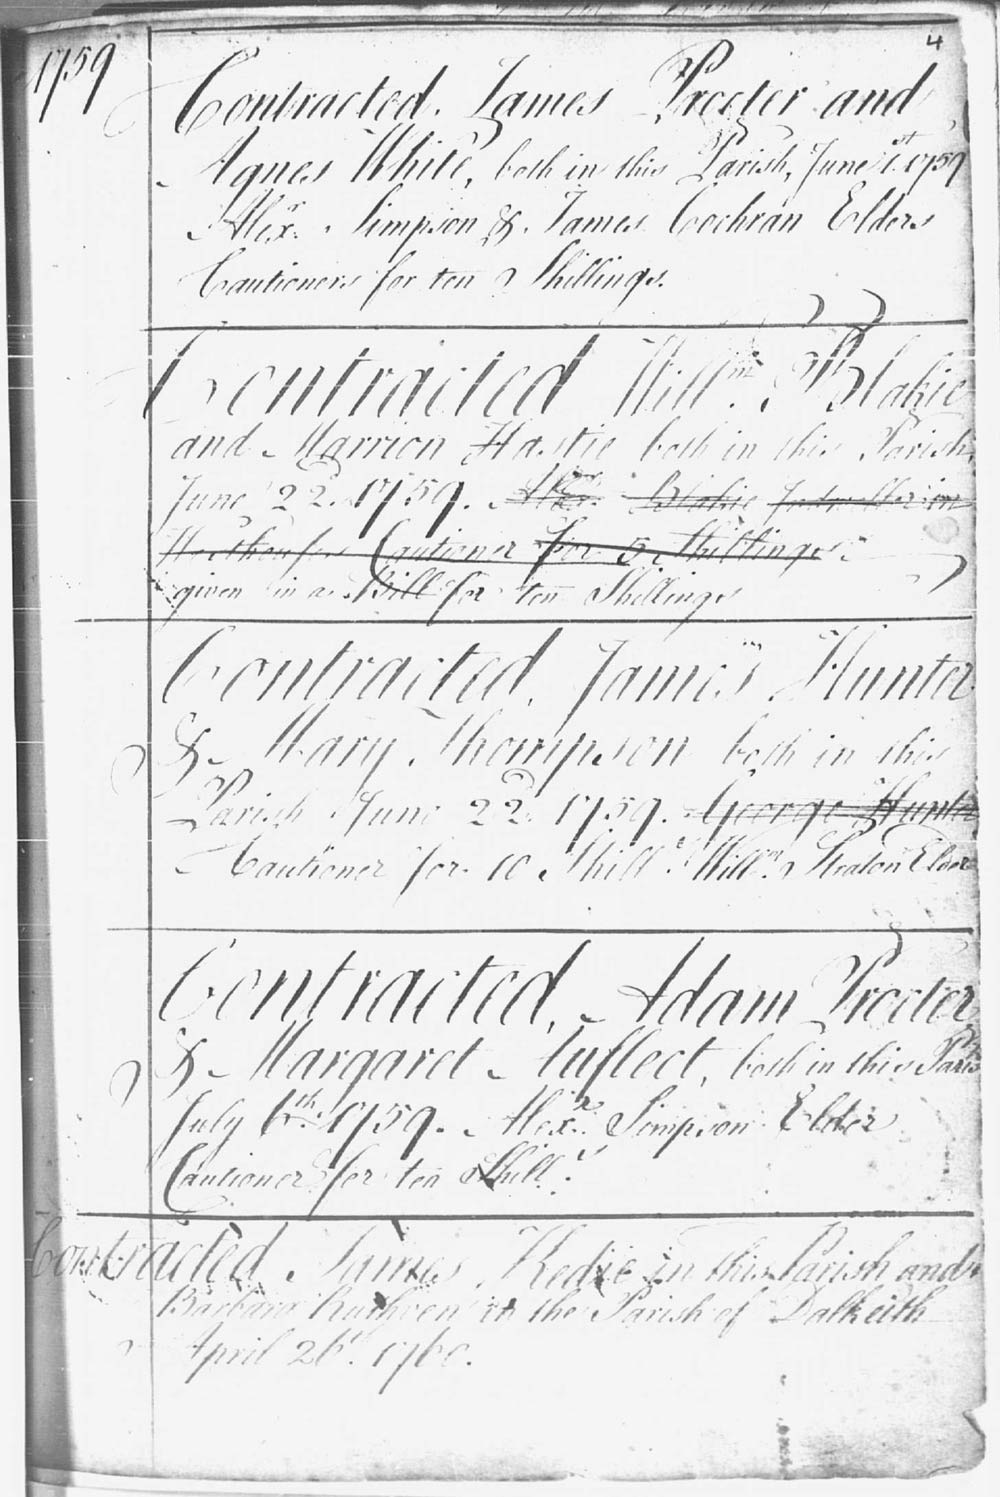 4
1759
Contracted. James Procter and
Agnes White, both in this Parish, June 1st. 1759
Alexr. Simpson & James Cochran Elders
Cautioners for ten Shillings.
Contracted Willm. Blakie
and Marrion Hastie both in this Parish,
June 22. 1759. Alexr. Blakie in
Cautioner for 5 Shillings
given in a Bill for ten Shillings
Contracted, James Hunter
& Mary Thompson both in this
Parish June 22. 1759. George Hunter
Cautioner for 10 Shills. Willm. Straton Elder
Contracted, Adam Procter
& Margaret Auflect, both in this Paris
July 6th. 1759. Alexr. Simpson Elder
Cautioner for ten Shills.
Contracted James Kedie in this Parish and
Barbara Ruthven in the Parish of Dalkeith
April 26t. 1760.